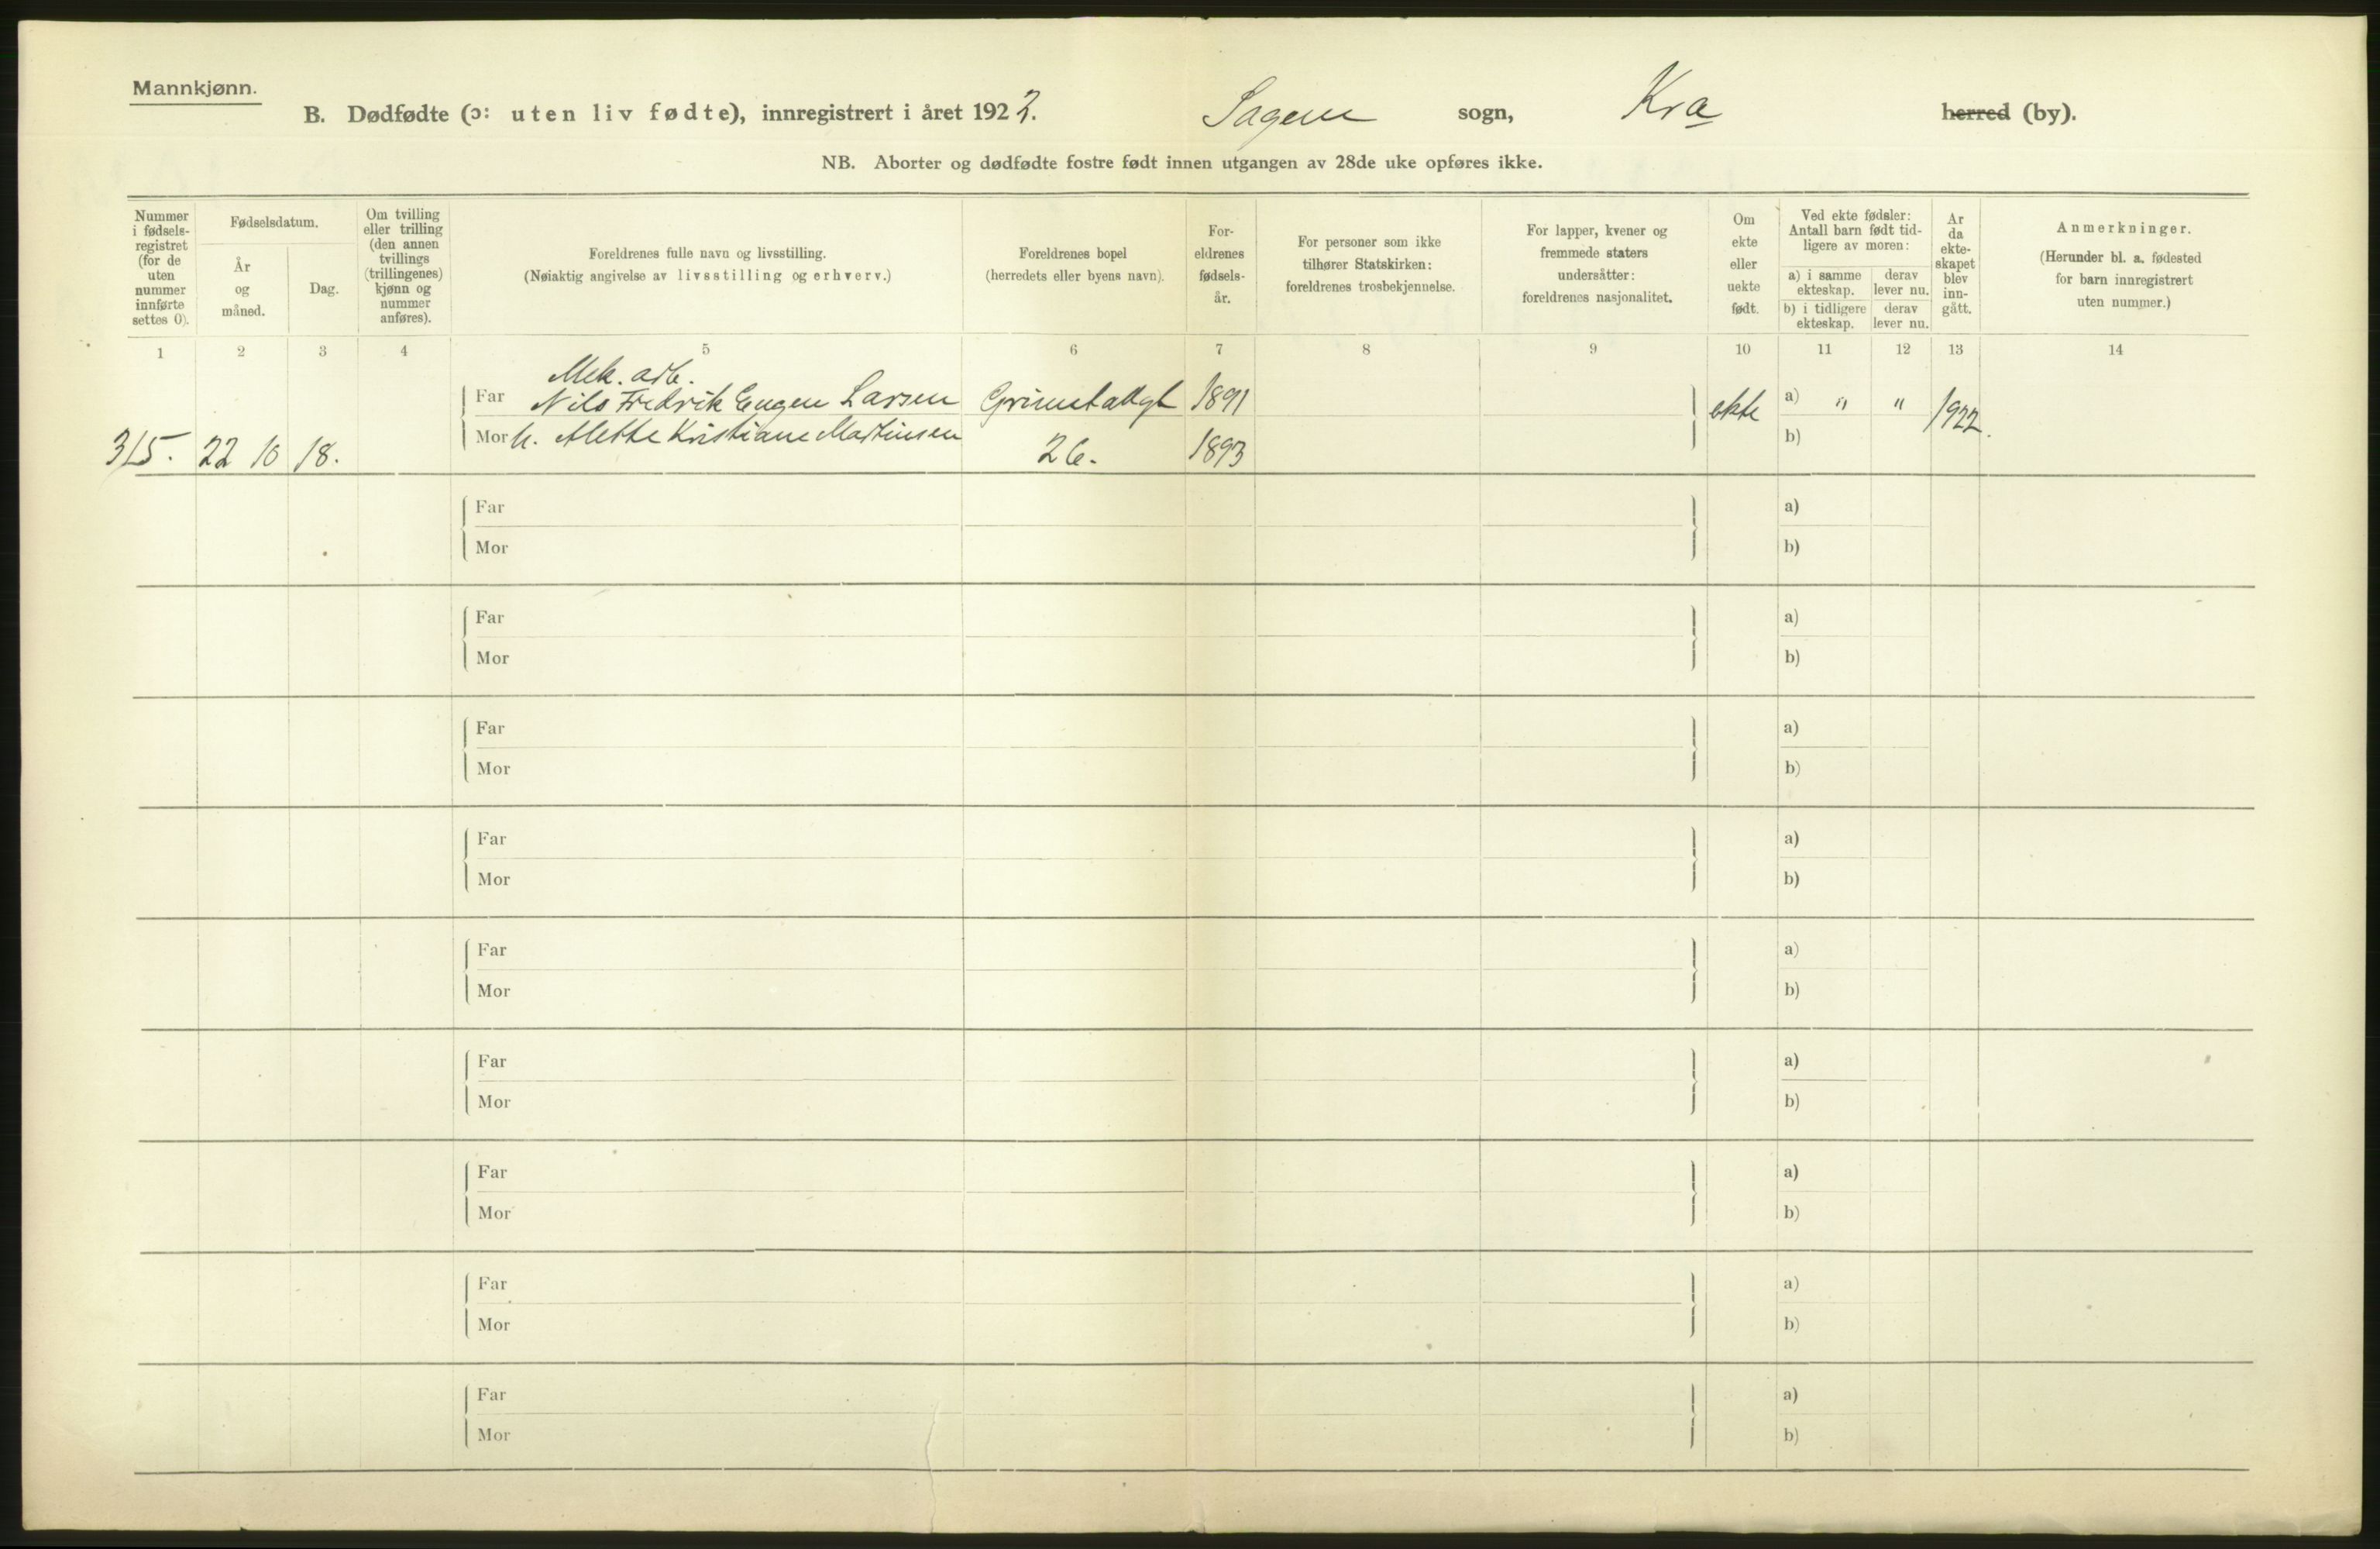 Mannkjønn.
B. Dødfødte (ɔ: uten liv fødte), innregistrert i året 1922. Sagene sogn, Kra herred (by).
NB. Aborter og dødfødte fostre født innen utgangen av 28de uke opføres ikke.
Nummer i fødsels-registret (for de uten nummer innførte settes 0).
Fødselsdatum.
År og måned.
Dag.
Om tvilling eller trilling (den annen tvillings (trillingenes) kjønn og nummer anføres).
Foreldrenes fulle navn og livsstilling.
(Nøiaktig angivelse av livsstilling og erhverv.)
Foreldrenes bopel
(herredets eller byens navn).
For-eldrenes fødsels-år.
For personer som ikke tilhører Statskirken: foreldrenes trosbekjennelse.
For lapper, kvener og fremmede staters undersåtter: foreldrenes nasjonalitet.
Om ekte eller uekte født.
Ved ekte fødsler: Antall barn født tid-ligere av moren:
a) i samme ekteskap.
derav lever nu.
b) i tidligere ekteskap.
derav lever nu.
År da ekte-skapet blev inn-gått.
Anmerkninger.
(Herunder bl. a. fødested for barn innregistrert uten nummer.)
1 2 3 4 5 6 7 8 9 10 11 12 13 14
Mek. arb.
Far Nils Fredrik Eugen Larsen Grimstadgt 1891 ekte a) " " 1922.
Mor h. Alette Kristiane Martinsen b)
315. 22 10 18. 26. 1893
Far a)
Mor b)
Far a)
Mor b)
Far a)
Mor b)
Far a)
Mor b)
Far a)
Mor b)
Far a)
Mor b)
Far a)
Mor b)
Far a)
Mor b)
Far a)
Mor b)